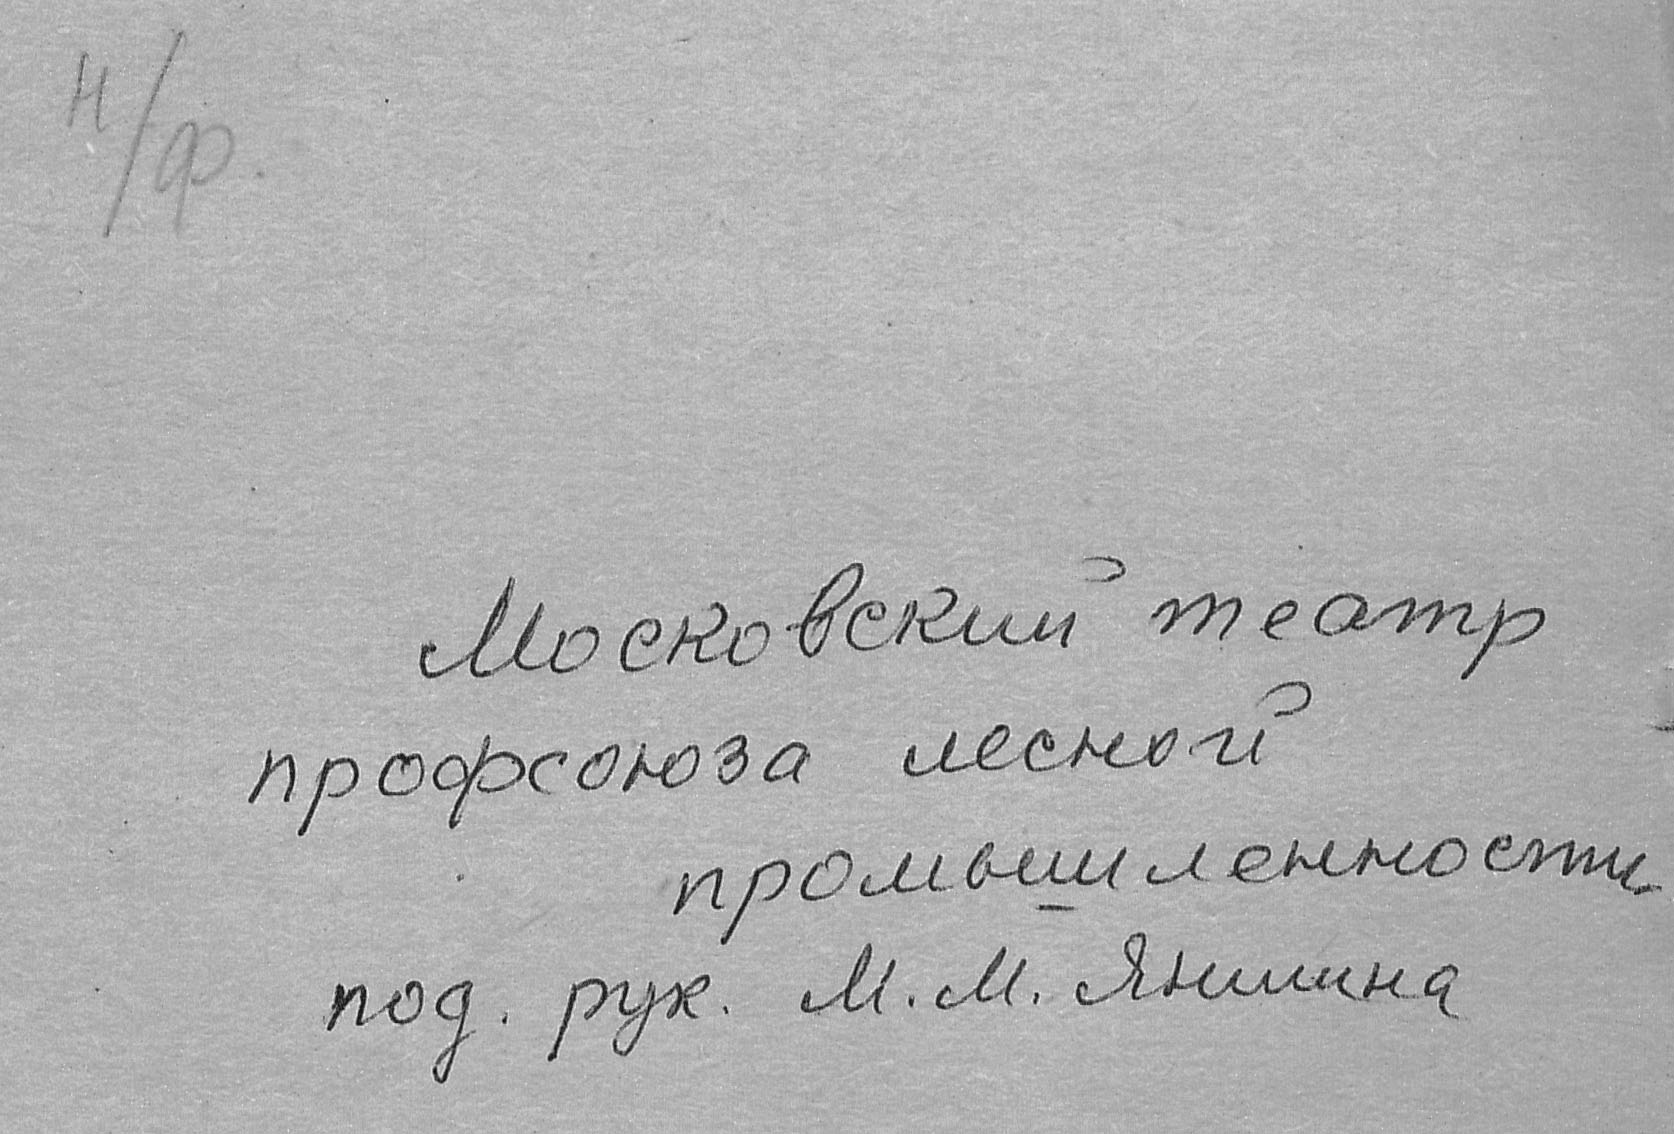 н/ф.
Московский театр
профсоюза лесной
промышленности
под. рук. М. М. Яншина